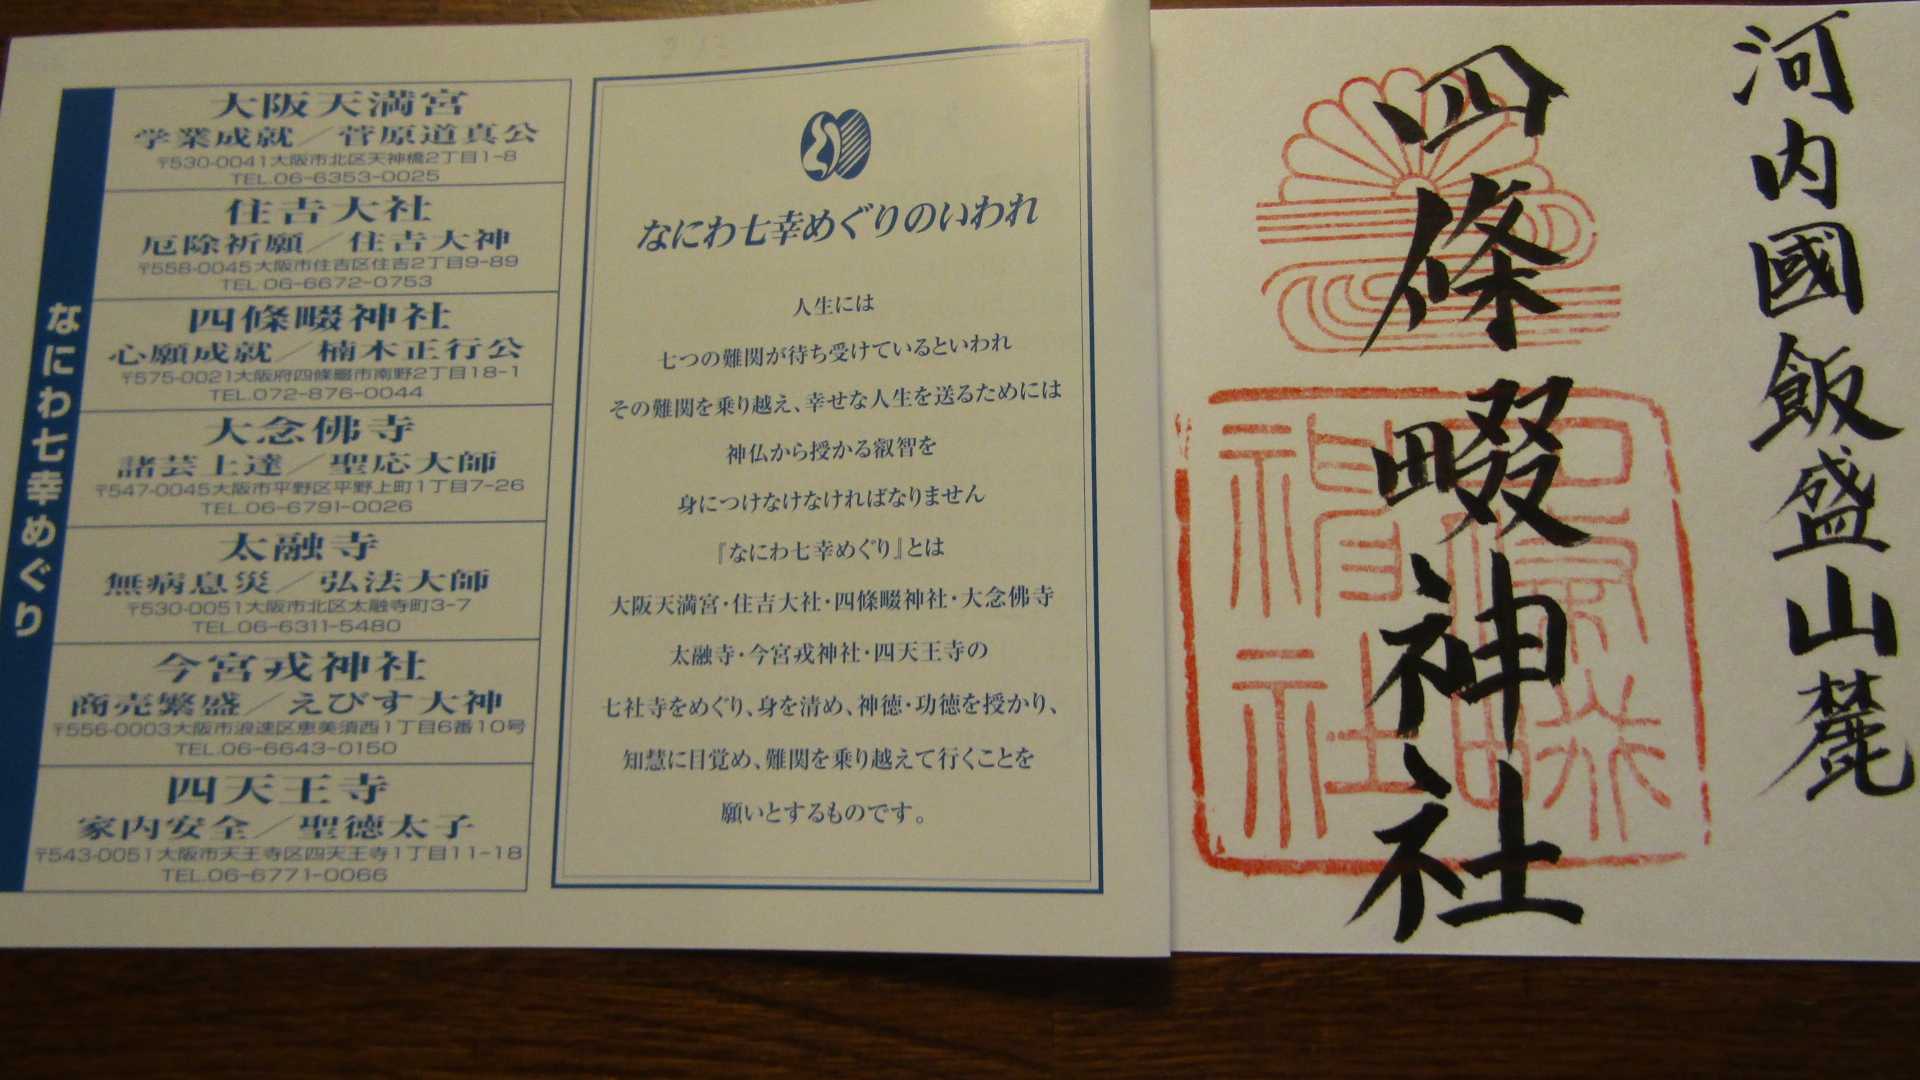 なにわ七幸めぐり
大阪天満宮
学業成就／菅原道真公
〒530-0041大阪市北区天神橋2丁目1-8
TEL.06-6353-0025
住吉大社
厄除祈願／住吉大神
〒558-0045大阪市住吉区住吉2丁目9-89
TEL.06-6672-0753
四條畷神社
心願成就／楠木正行公
〒575-0021大阪府四條畷市南野2丁目18-1
TEL.072-876-0044
大念佛寺
諸芸上達／聖応大師
〒547-0045大阪市平野区平野上町1丁目7-26
TEL.06-6791-0026
太融寺
無病息災／弘法大師
〒530-0051大阪市北区太融寺町3-7
TEL.06-6311-5480
今宮戎神社
商売繁盛／えびす大神
〒556-0003大阪市浪速区恵美須西1丁目6番10号
TEL.06-6643-0150
四天王寺
家内安全／聖徳太子
〒543-0051大阪市天王寺区四天王寺1丁目11-18
TEL.06-6771-0066
なにわ七幸めぐりのいわれ
人生には
七つの難関が待ち受けているといわれ
その難関を乗り越え、幸せな人生を送るためには
神仏から授かる叡智を
身につけなけなければなりません
『なにわ七幸めぐり』とは
大阪天満宮・住吉大社・四條畷神社・大念佛寺
太融寺・今宮戎神社・四天王寺の
七社寺をめぐり、身を清め、神徳・功徳を授かり、
知慧に目覚め、難関を乗り越えて行くことを
願いとするものです。
河内國飯盛山麓
四條畷神社
四條畷神社